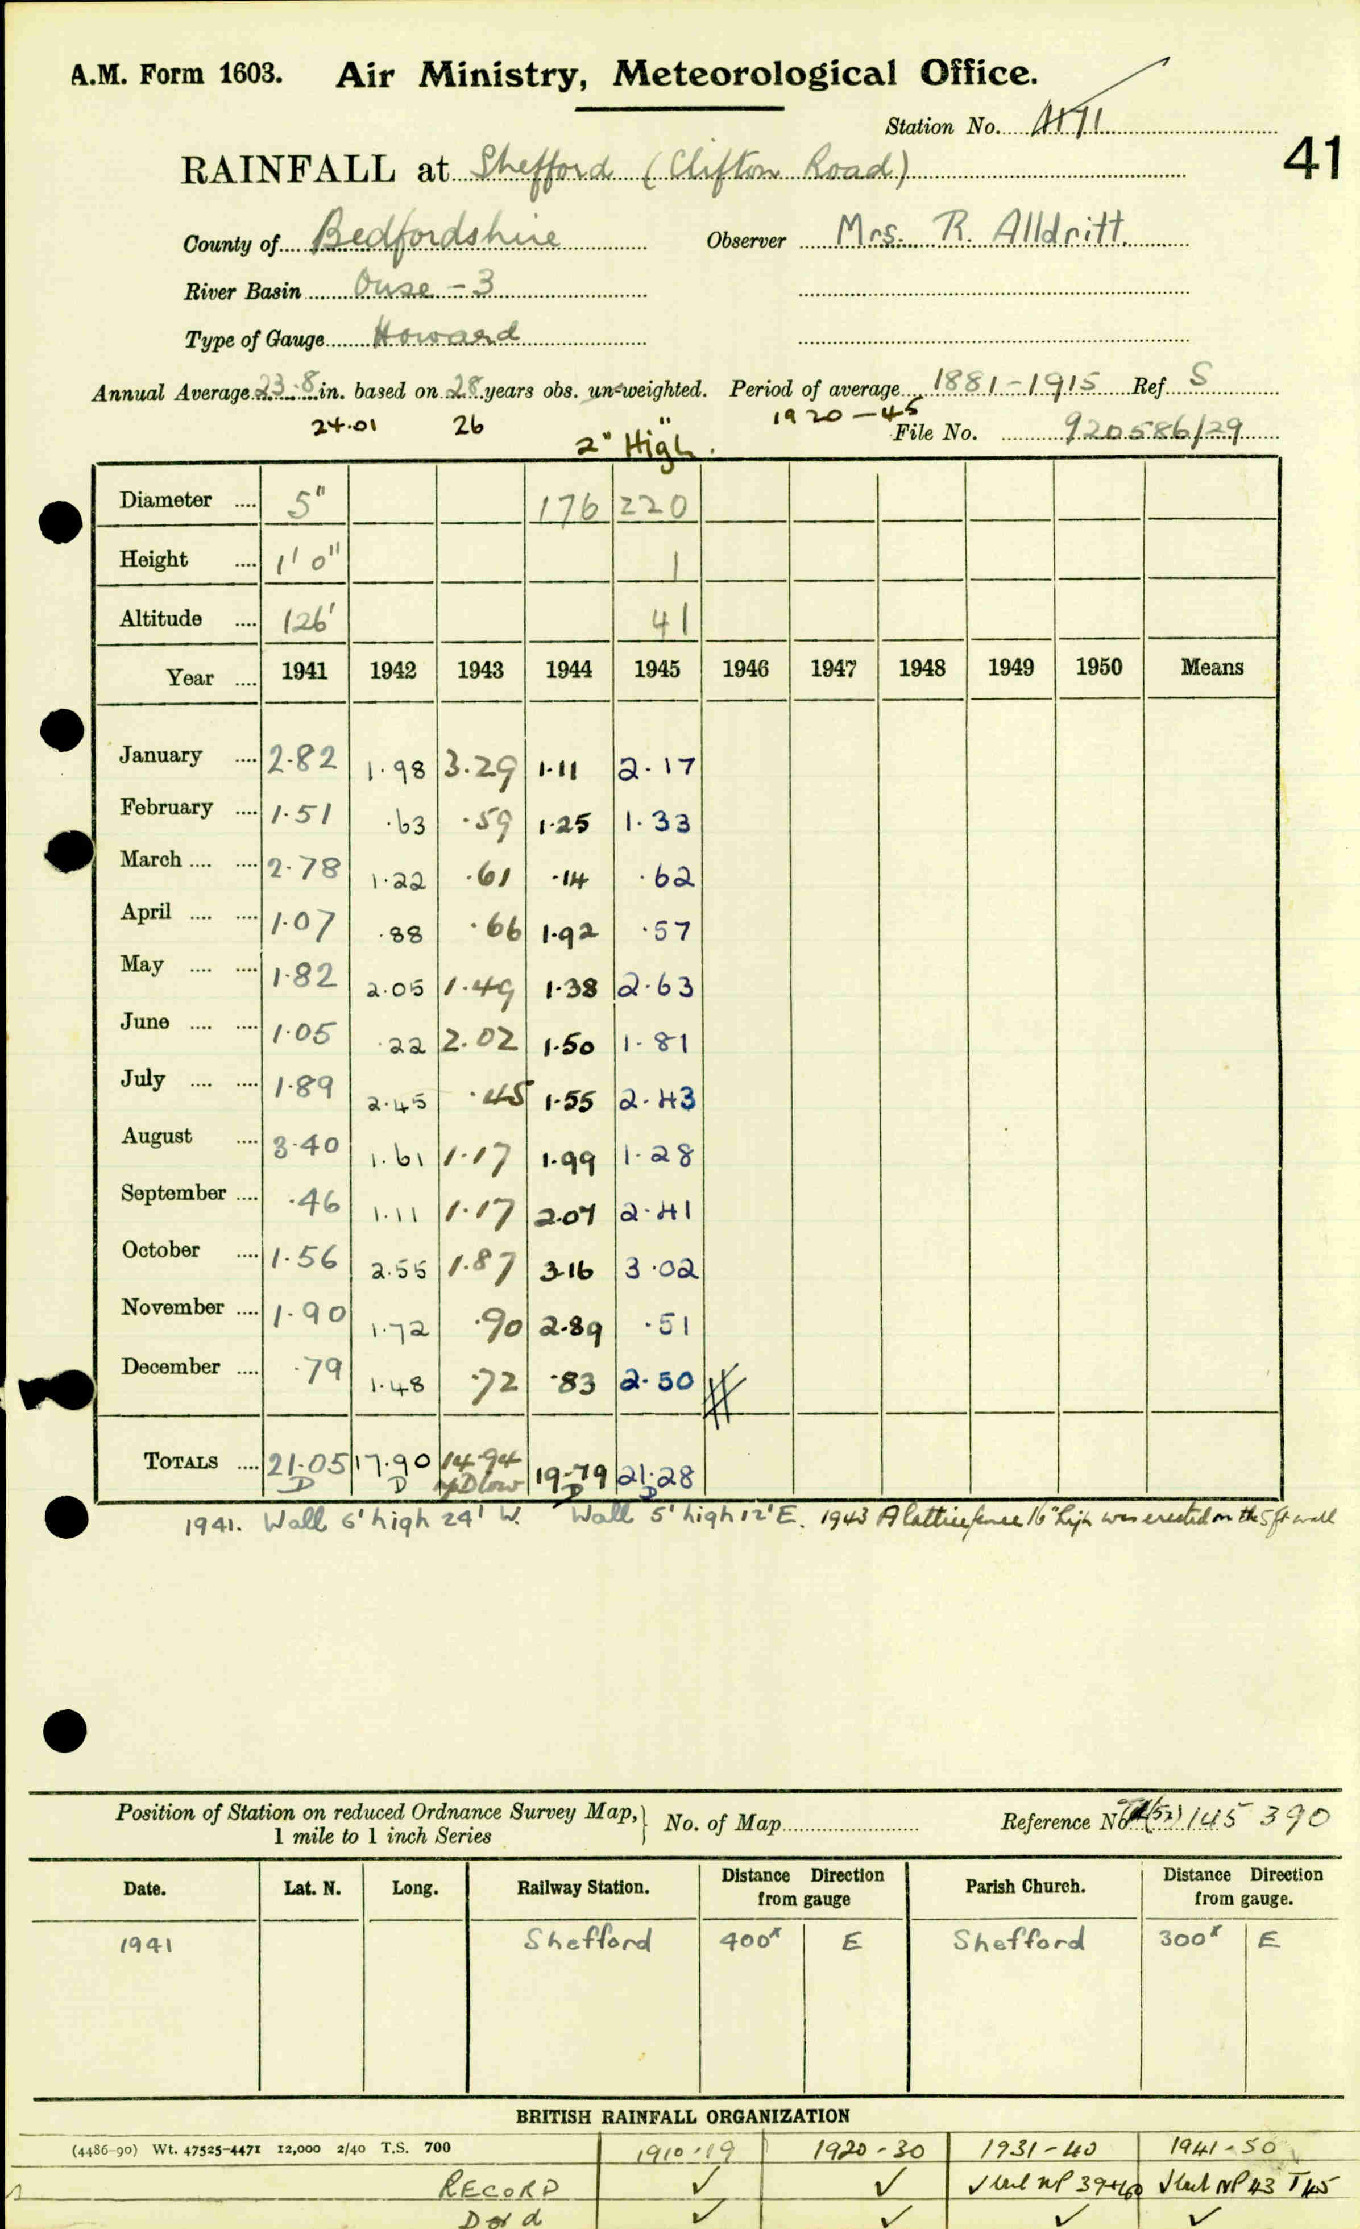 A.M. Form 1603. Air Ministry, Meteorological Office.
Station No.
41
RAINFALL at Shefford (Clifton Road)
County of Bedfordshire Observer Mrs. R. Alldritt.
River Basin Ouse - 3
Type of Gauge Howard
Annual Average 23.8 in. based on 28 years obs. un-weighted. Period of average 1881-1915 Ref S
24.01 26 1920-45
File No. 920586/29
2" High.
Diameter .... 5" 176 220
Height .... 1' 0" 1
Altitude .... 126' 41
Year .... 1941 1942 1943 1944 1945 1946 1947 1948 1949 1950 Means
January .... 2.82 1.98 3.29 1.11 2.17
February .... 1.51 .63 .59 1.25 1.33
March .... .... 2.78 1.22 .61 .14 .62
April .... .... 1.07 .88 .66 1.92 .57
May .... .... 1.82 2.05 1.49 1.38 2.63
June .... .... 1.05 .22 2.02 1.50 1.81
July .... .... 1.89 2.45 .45 1.55 2.43
August .... 3.40 1.61 1.17 1.99 1.28
September .... .46 1.11 1.17 2.07 2.41
October .... 1.56 2.55 1.87 3.16 3.02
November .... 1.90 1.72 .90 2.89 .51
December .... .79 1.48 .72 .83 2.50
TOTALS .... 21.05 17.90 14.94 19.79 21.28
D D npD low D D
1941. Wall 6' high 24' W. Wall 5' high 12' E. 1943 A lattice fence 16" high was erected on the 5 ft wall
Position of Station on reduced Ordnance Survey Map, 1 mile to 1 inch Series } No. of Map Reference No 145 390
Date. Lat. N. Long. Railway Station. Distance Direction from gauge Parish Church. Distance Direction from gauge.
1941 Shefford 400x E Shefford 300x E
BRITISH RAINFALL ORGANIZATION
(4486-90) Wt. 47525-4471 12,000 2/40 T.S. 700 1910-19 1920-30 1931-40 1941-50
RECORD ✓ ✓ ✓ ✓
✓ ✓ ✓ ✓